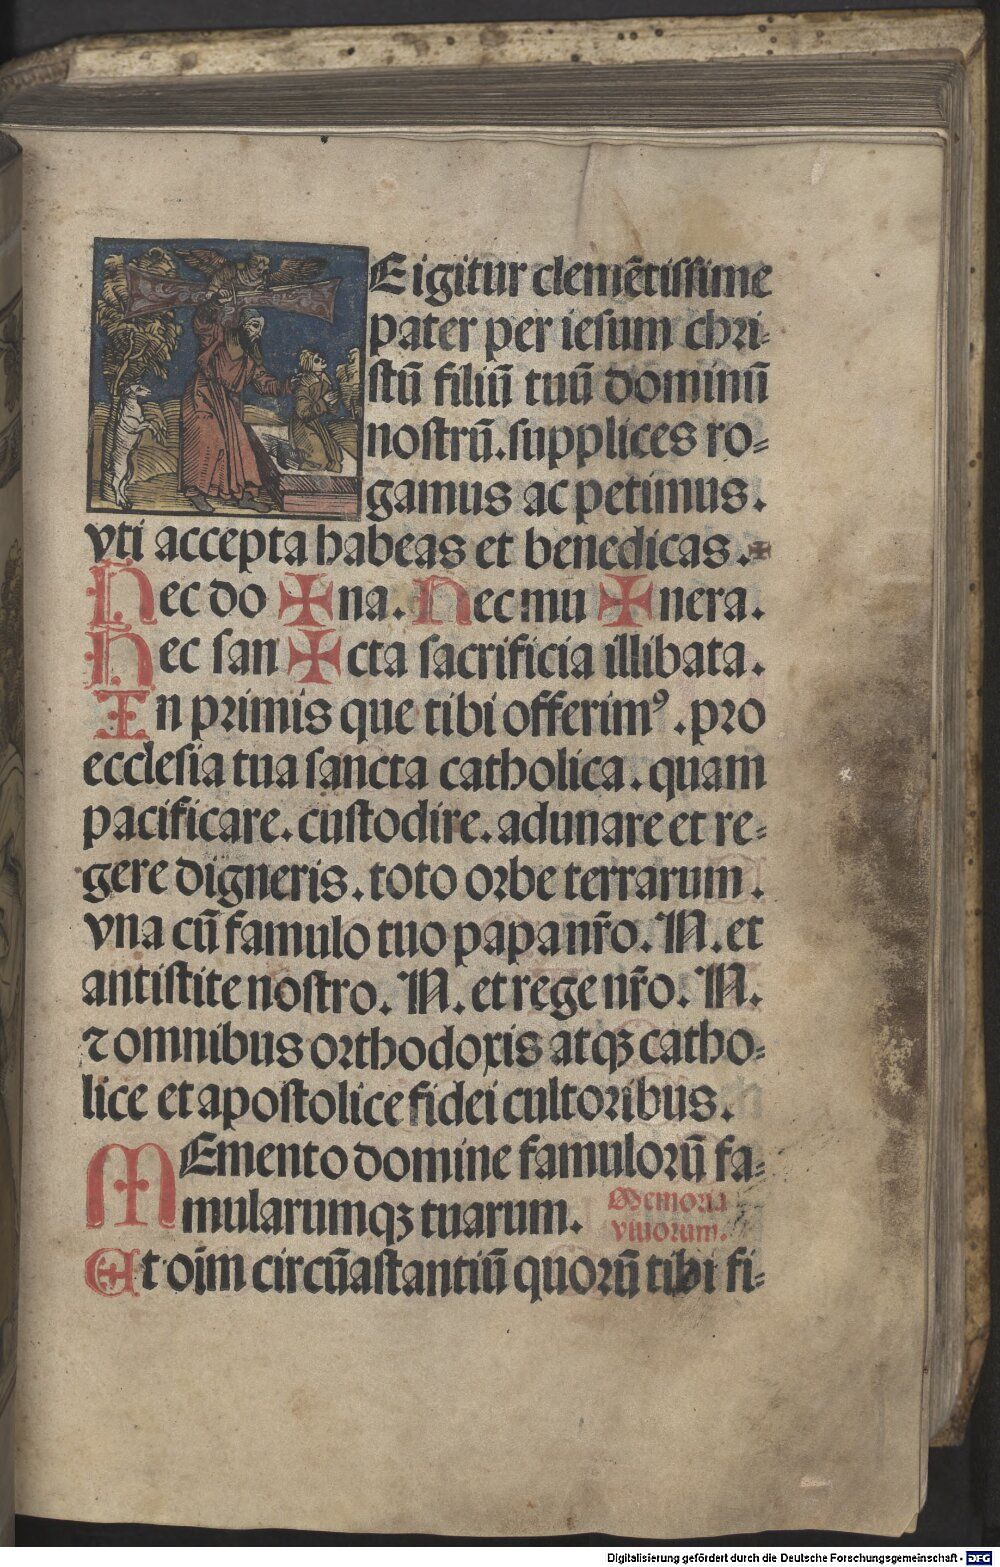 E igitur clemētissime
pater per iesum chri-
stū filiū tuū dominū
nostrū. supplices ro-
gamus ac petimus.
vti accepta habeas et benedicas. ✠
Hec do ✠ na. Hec mu ✠ nera.
Hec san ✠ cta sacrificia illibata.
In primis que tibi offerimꝰ. pro
ecclesia tua sancta catholica. quam
pacificare. custodire. adunare et re-
gere digneris. toto orbe terrarum.
vna cū famulo tuo papa nr̄o. N. et
antistite nostro. N. et rege nr̄o. N.
⁊ omnibus orthodoxis atqꝫ catho-
lice et apostolice fidei cultoribus.
MEmento domine famulorū fa-
mularumqꝫ tuarum. Memoria
viuorum.
Et oīm circūastantiū quorū tibi fi-
Digitalisierung gefördert durch die Deutsche Forschungsgemeinschaft - DFG